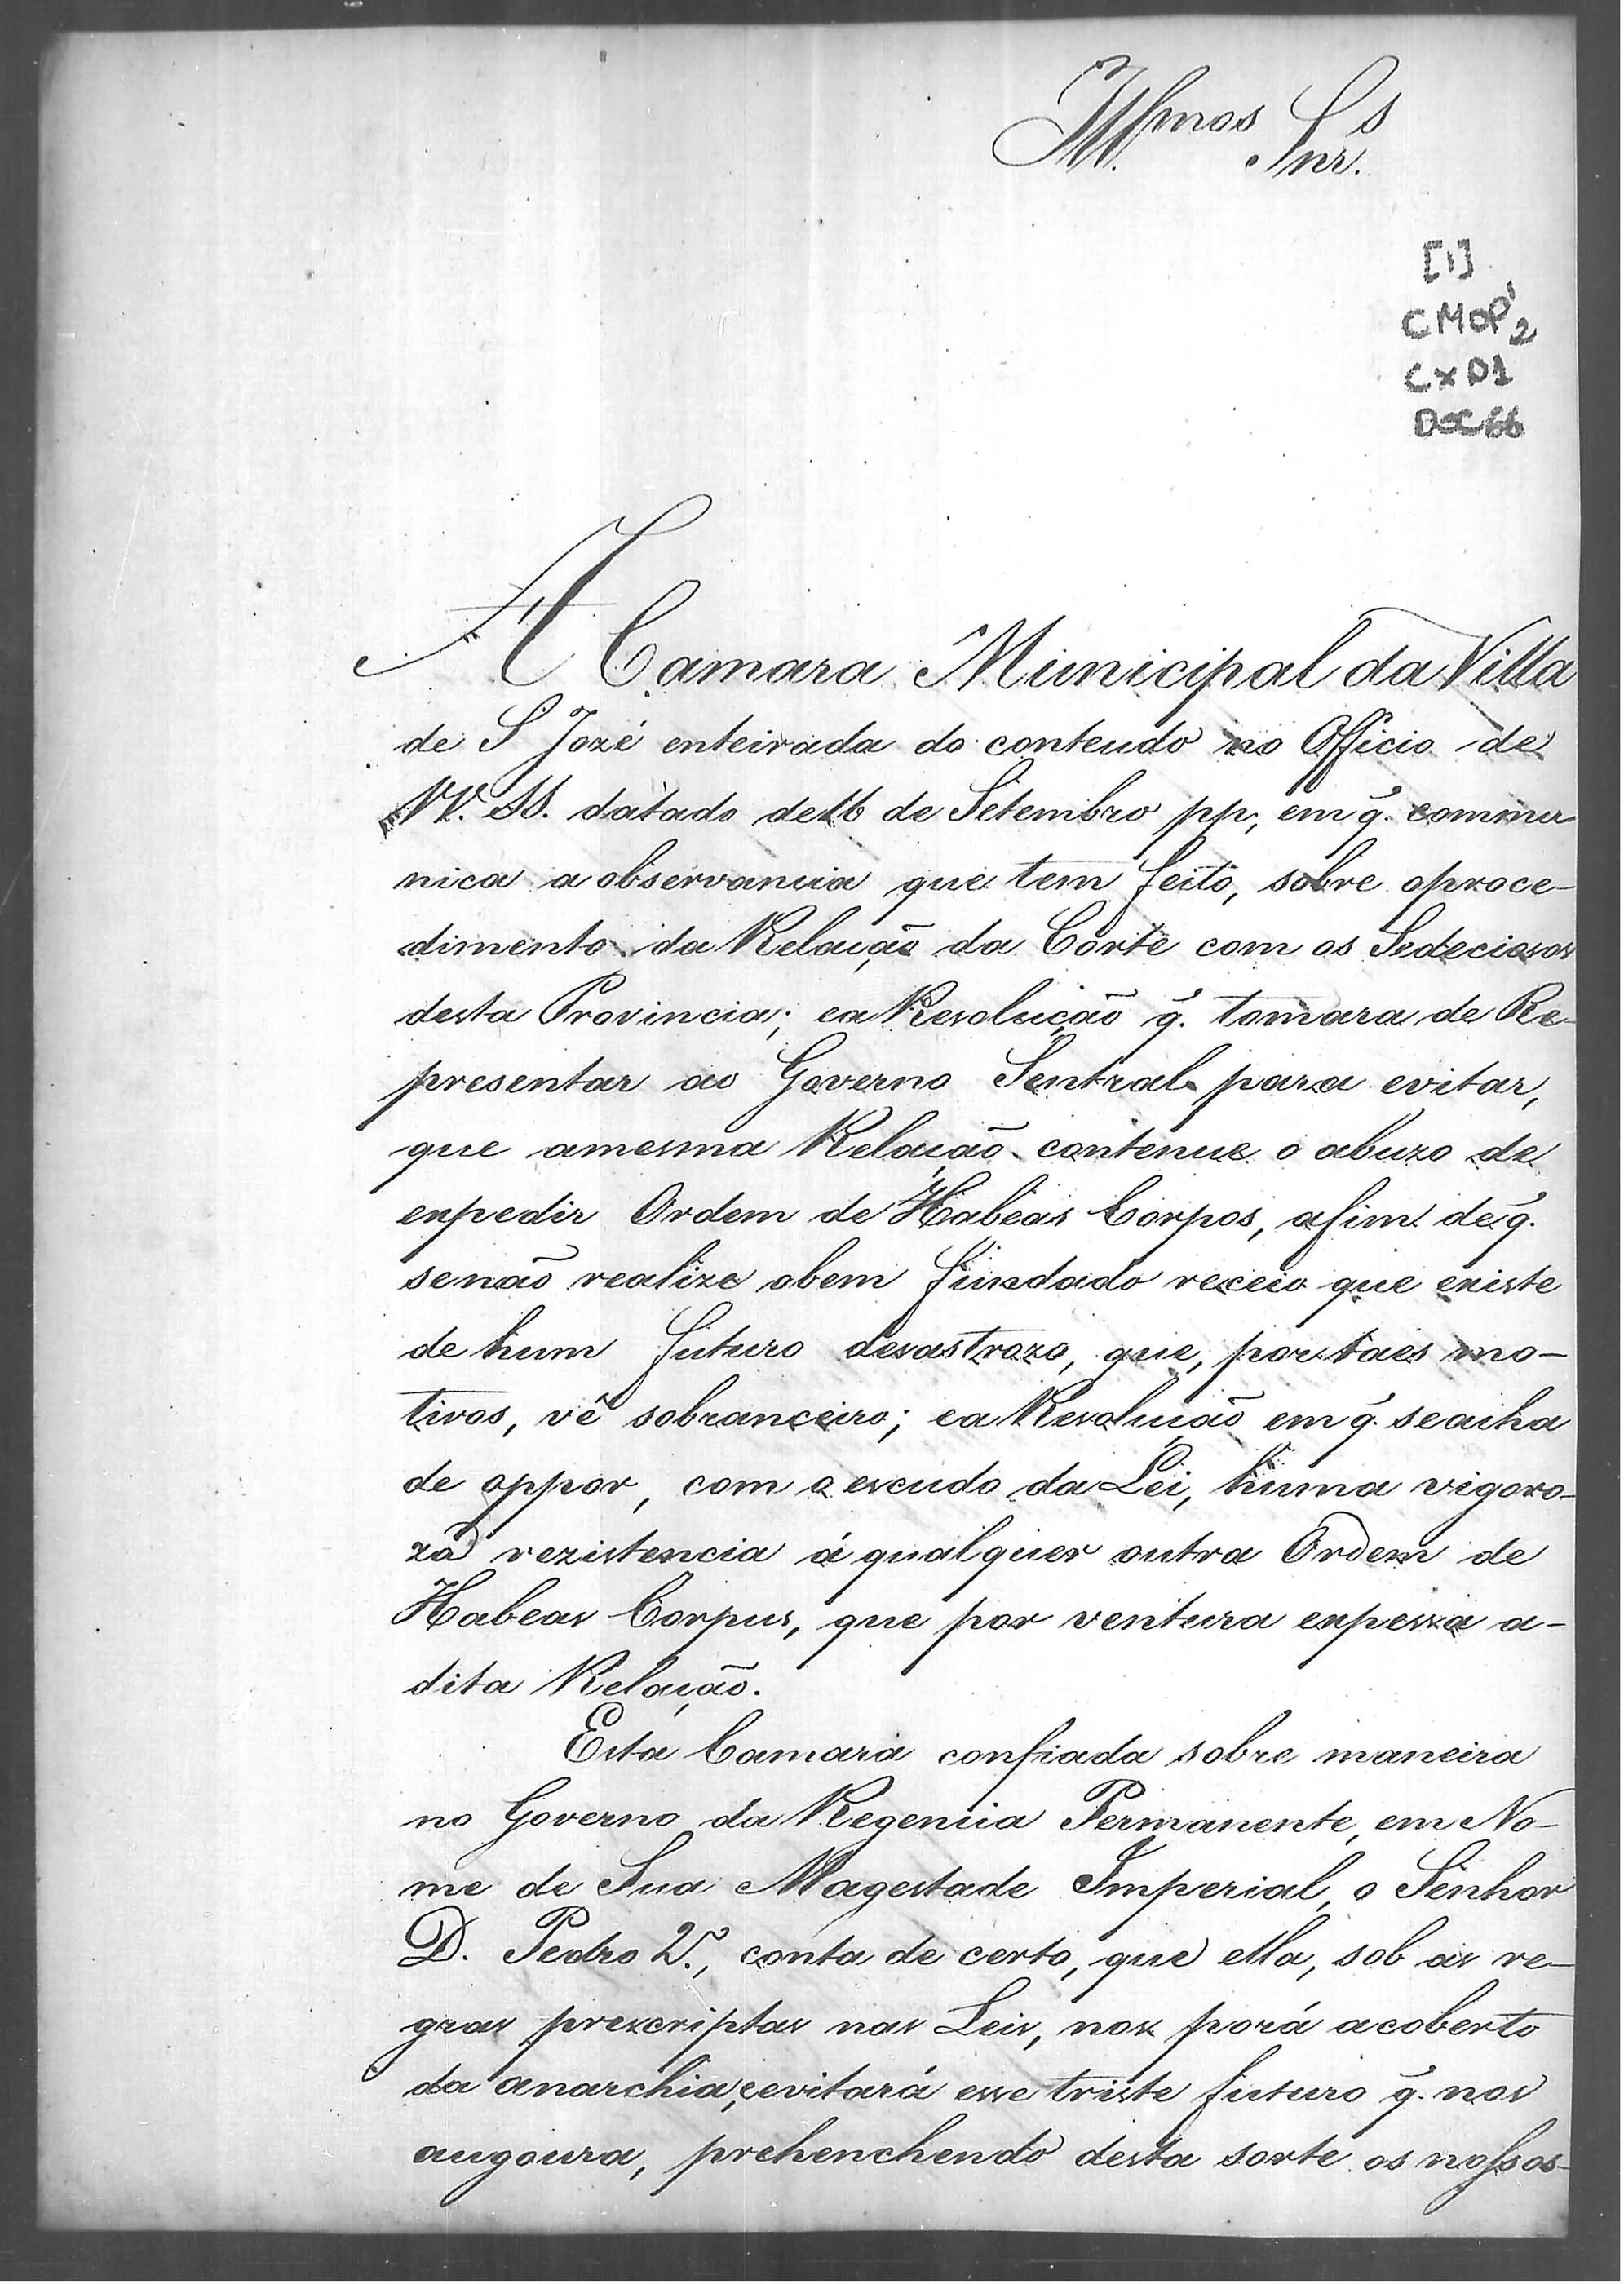 Illmos Snrs
[1]
CMOP 2
Cx 01
Doc 66
A Camara Municipal da Villa
de S Jozé enteirada do contendo no Officio de
VV. SS. datado de 16 de Setembro pp, em q. commu
nica a observancia que tem feito, sobre oproce-
dimento da Relação da Corte com os Sedeciosos
desta Provincia; ea Resolução q. tomara de Re-
presentar ao Governo Sentral para evitar,
que amesma Relação contenue o abuzo de
expedir Ordem de Habeas Corpos, afim de q.
senão realize obem fundado receio que existe
de hum futuro desastrozo, que, por taes mo-
tivos, vê sobranceiro; ea Resolução em q. seacha
de oppor, com o escudo da Lei, huma vigoro-
za rezistencia á qualquer outra Ordem de
Habeas Corpus, que por ventura expessa a-
dita Relação.
Esta Camara confiada sobre maneira
no Governo da Regencia Permanente, em No-
me de Sua Magestade Imperial, o Senhor
D. Pedro 2º, conta de certo, que ella, sob as re-
gras prescriptas nas Leis, nos porá acoberto
da anarchia, eevitará esse triste futuro q. nos
augoura, prehenchendo desta sorte os nossos